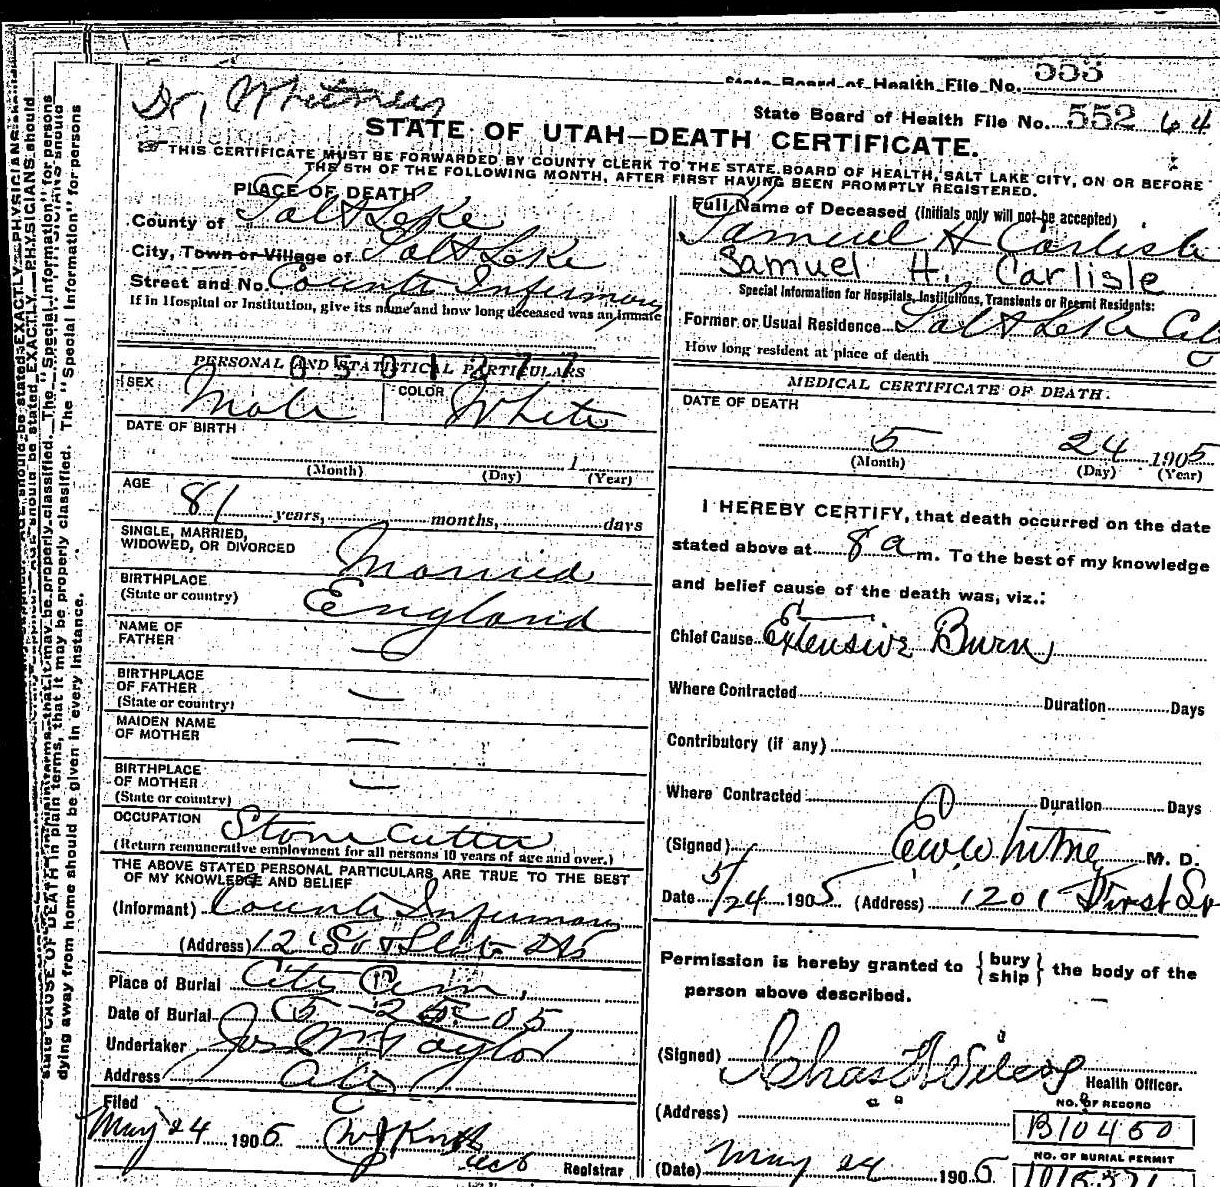 Dr. Whitney
State Board of Health File No. 553
State Board of Health File No. 552 64
STATE OF UTAH—DEATH CERTIFICATE.
THIS CERTIFICATE MUST BE FORWARDED BY COUNTY CLERK TO THE STATE BOARD OF HEALTH, SALT LAKE CITY, ON OR BEFORE
THE 5TH OF THE FOLLOWING MONTH, AFTER FIRST HAVING BEEN PROMPTLY REGISTERED.
PLACE OF DEATH
County of Salt Lake
City, Town or Village of Salt Lake
Street and No. County Infirmary
If in Hospital or Institution, give its name and how long deceased was an inmate
PERSONAL AND STATISTICAL PARTICULARS
0501277
SEX Male COLOR White
DATE OF BIRTH
1
(Month) (Day) (Year)
AGE
81 years, months, days
SINGLE, MARRIED,
WIDOWED, OR DIVORCED Married
BIRTHPLACE
(State or country) England
NAME OF
FATHER —
BIRTHPLACE
OF FATHER —
(State or country)
MAIDEN NAME
OF MOTHER —
BIRTHPLACE
OF MOTHER —
(State or country)
OCCUPATION Stone Cutter
(Return remunerative employment for all persons 10 years of age and over.)
THE ABOVE STATED PERSONAL PARTICULARS ARE TRUE TO THE BEST
OF MY KNOWLEDGE AND BELIEF
(Informant) County Infirmary
(Address) 12 So & State Sts
Place of Burial City Cem,
Date of Burial 5-25-05
Undertaker Jos Wm Taylor
Address City
Filed
May 24 1905
Registrar
Full Name of Deceased (Initials only will not be accepted)
Samuel H Carlisle
Samuel H. Carlisle
Special Information for Hospitals, Institutions, Transients or Recent Residents:
Former or Usual Residence Salt Lake City
How long resident at place of death
MEDICAL CERTIFICATE OF DEATH.
DATE OF DEATH
5 24 1905
(Month) (Day) (Year)
I HEREBY CERTIFY, that death occurred on the date
stated above at 8 a m. To the best of my knowledge
and belief cause of the death was, viz.:
Chief Cause Extensive Burn
Where Contracted Duration Days
Contributory (if any)
Where Contracted Duration Days
(Signed) E W Whitney M. D.
Date 5/24 1905 (Address) 1201 First So
Permission is hereby granted to { bury
ship } the body of the
person above described.
(Signed) Health Officer.
(Address)
NO. OF RECORD
B10450
(Date) May 24 1905
NO. OF BURIAL PERMIT
state CAUSE OF DEATH in plain terms, that it may be properly classified. The "Special Information" for persons
dying away from home should be given in every instance.